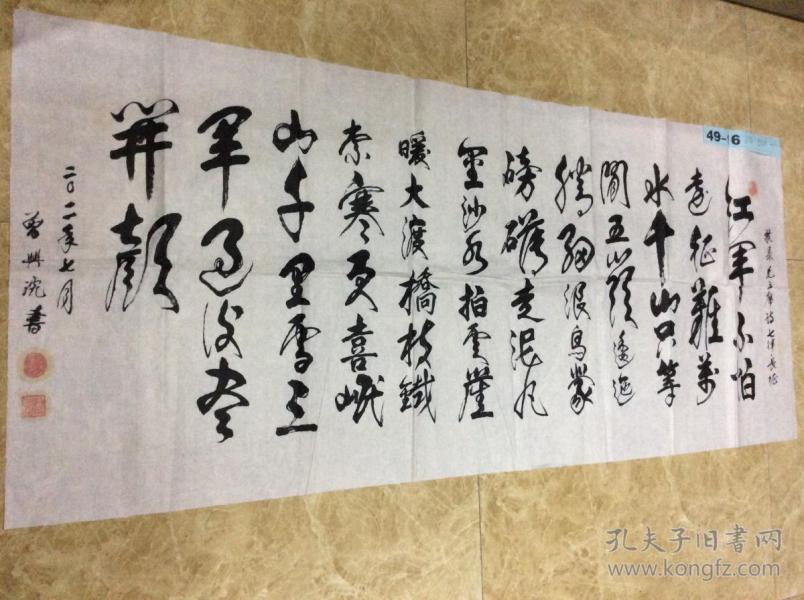 毛主席诗七律长征
红军不怕
远征難万
水千山只等
闲五岭逶迤
腾细浪乌蒙
磅礴走泥丸
金沙水拍云崖
暖大渡橋横鐵
索寒更喜岷
山千里雪三
军过后尽
开颜
二〇一一年七月
曾興 書
孔夫子旧书网
www.kongfz.com